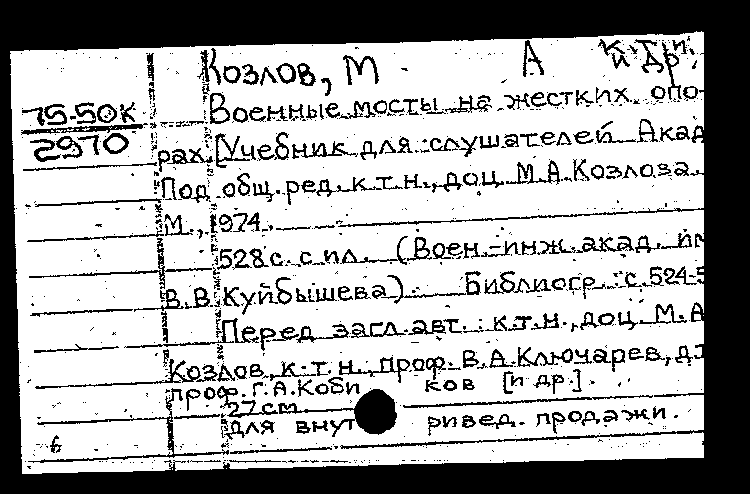 Козлов, М А к.т.н.
и др.
75-50к
2970
Военные мосты на жестких опо-
рах. [Учебник для слушателей Акад
Под общ. ред. к.т.н., доц. М.А.Козлова.
М., 1974.
528 с. с ил. (Воен.-инж. акад. им
В.В. Куйбышева). Библиогр.: с. 524-5
Перед загл. авт.: к.т.н., доц. М.А
Козлов, к.т.н., проф. В.А.Ключарев, д.т
проф. Г.А.Коби ков [и др.].
27 см.
Для внут ривед. продажи.
б